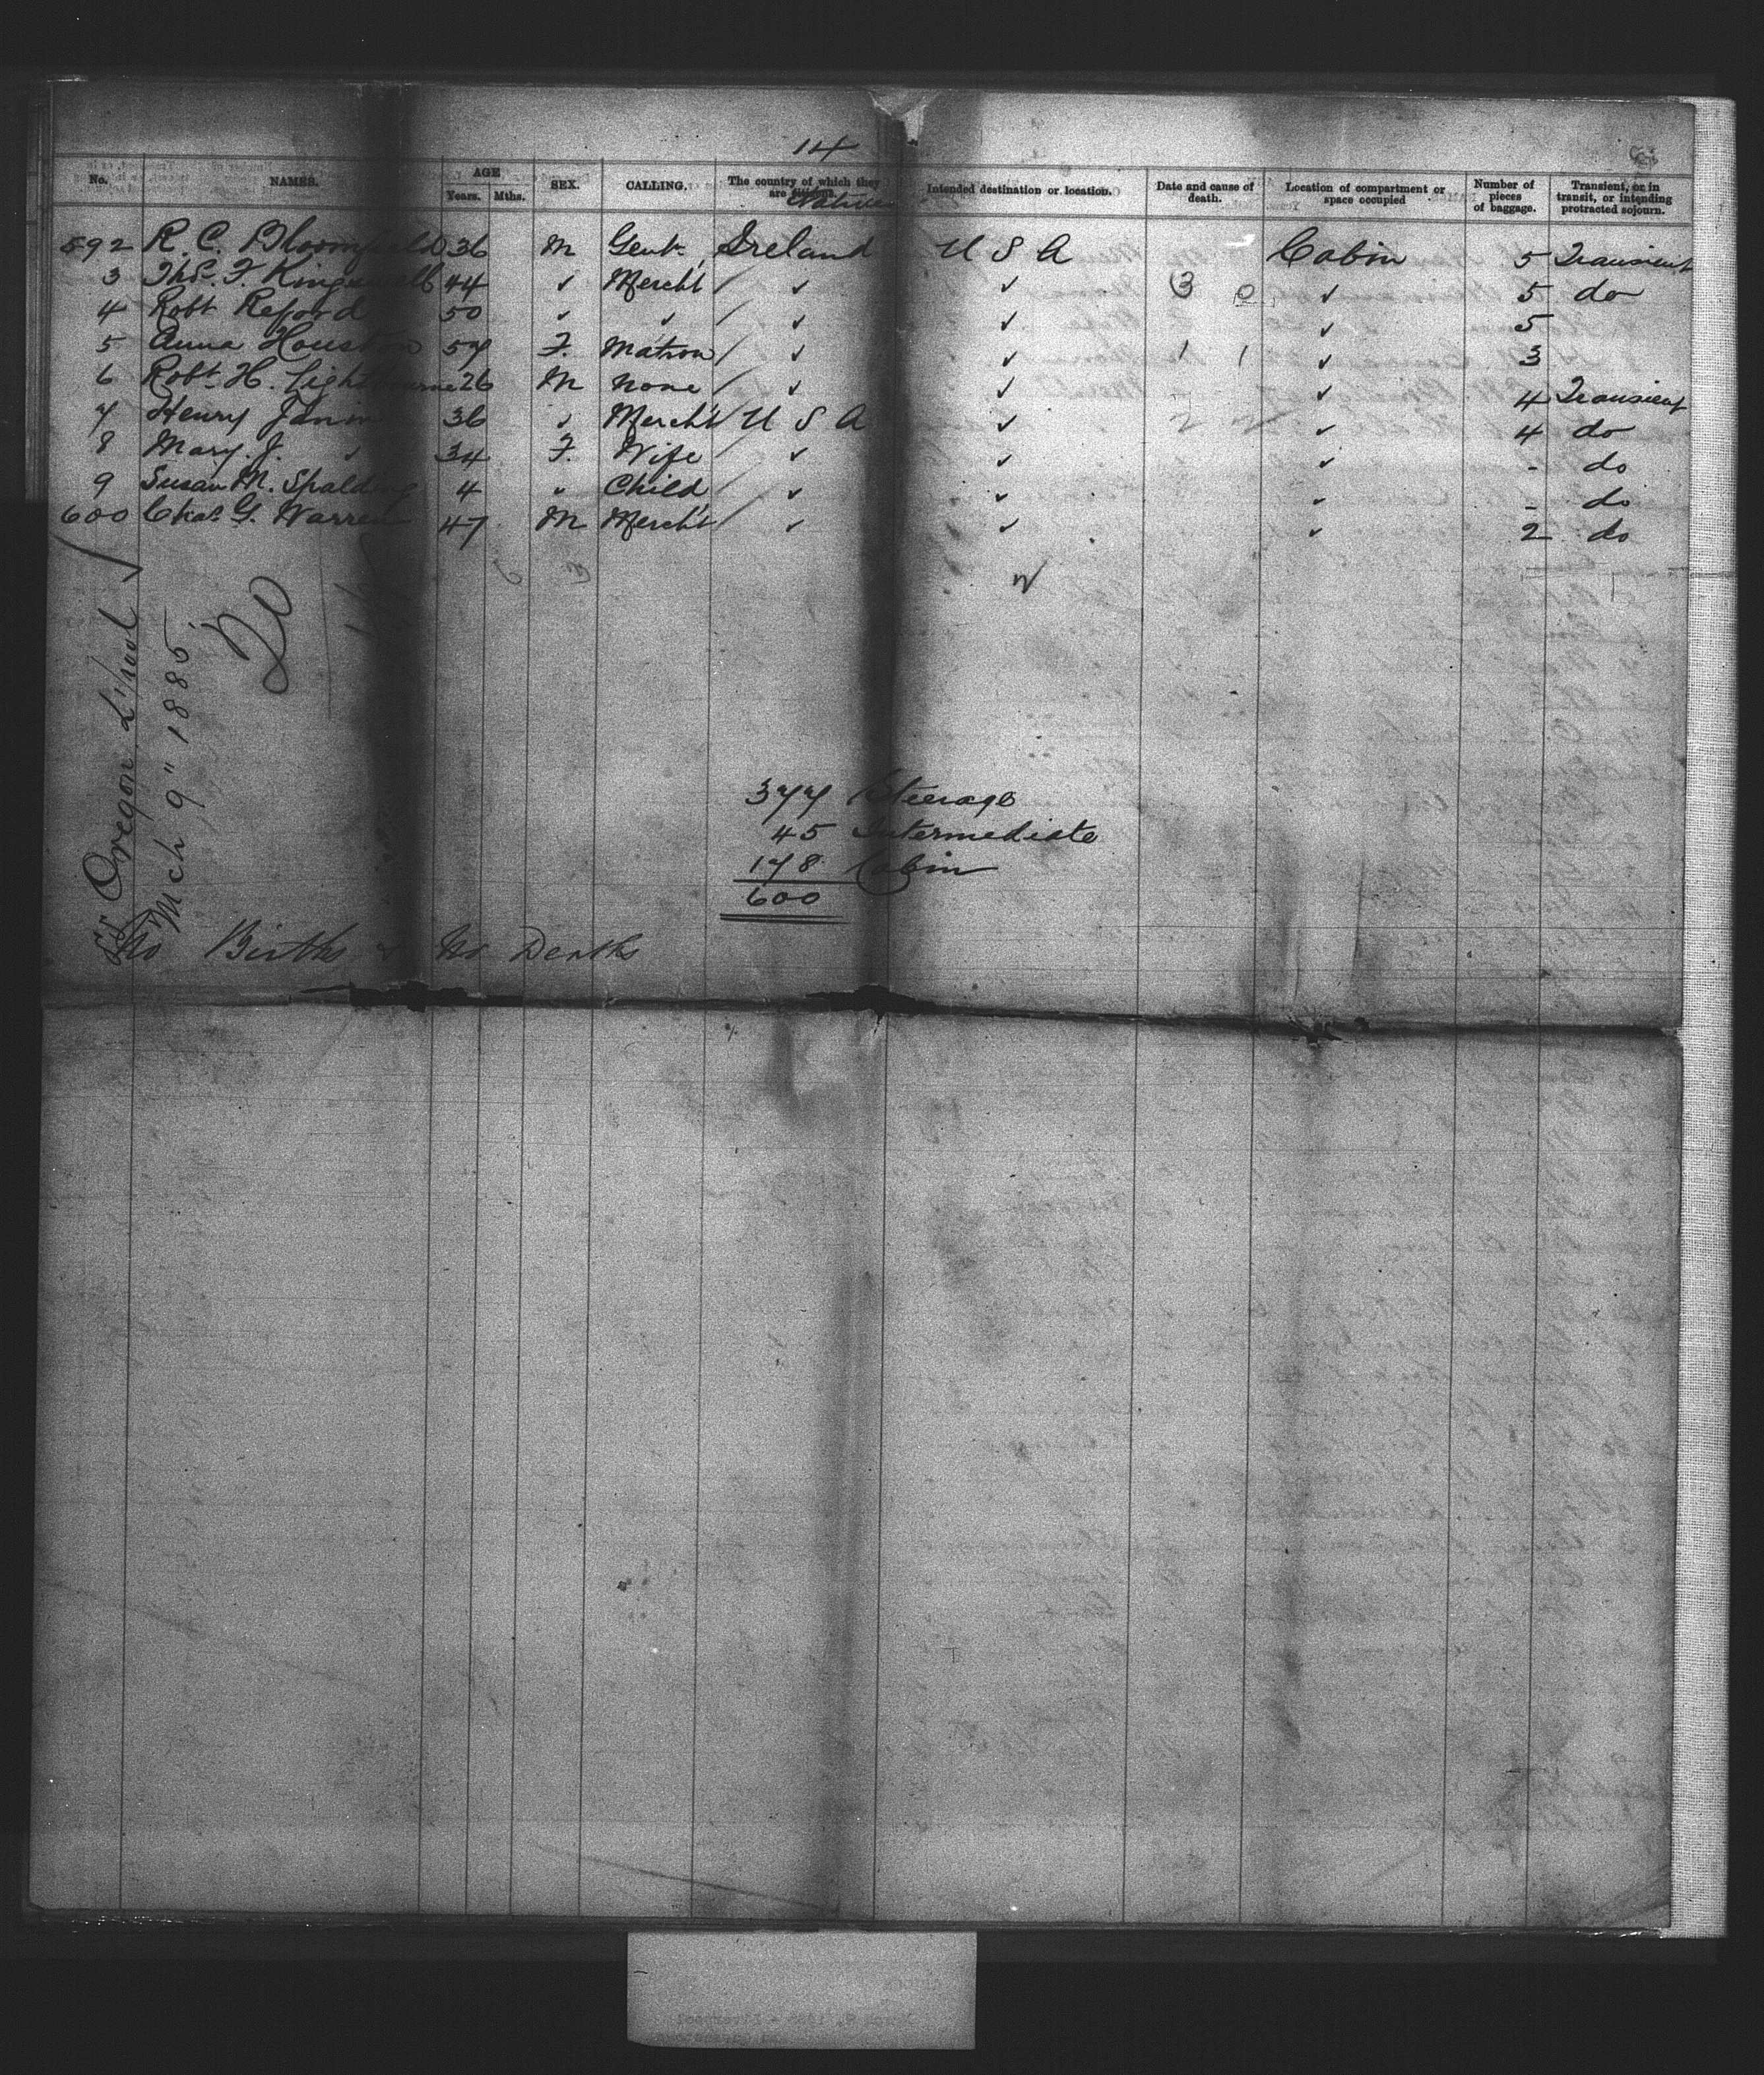 14
No. NAMES. AGE Years. Mths. SEX. CALLING. The country of which they are citizens. Natives Intended destination or location. Date and cause of death. Location of compartment or space occupied Number of pieces of baggage. Transient, or in transit, or intending protracted sojourn.
592 R. C. Bloomfield 36 M Gent. Ireland U S A Cabin 5 Transient
3 Thos. F. Kingswell 44 ✓ Mercht / ✓ ✓ ✓ 5 do
4 Robt Reford 50 ✓ ✓ / ✓ ✓ ✓ 5
5 Anna Houston 57 F. Matron / ✓ ✓ ✓ 3
6 Robt. H. Lightbourne 26 M None / ✓ ✓ ✓ 4 Transient
7 Henry 36 ✓ Mercht / U S A ✓ ✓ 4 do
8 Mary. J. ✓ 34 F. Wife / ✓ ✓ ✓ - do
9 Susan M. Spalding 4 " Child / ✓ ✓ ✓ - do
600 Chas. G. Warren 47 M Mercht / ✓ ✓ ✓ 2 do
20
SS Oregon L'pool
Mch 9" 1885
377 Steerage
45 Intermediate
178 Cabin
600
No Births & No Deaths